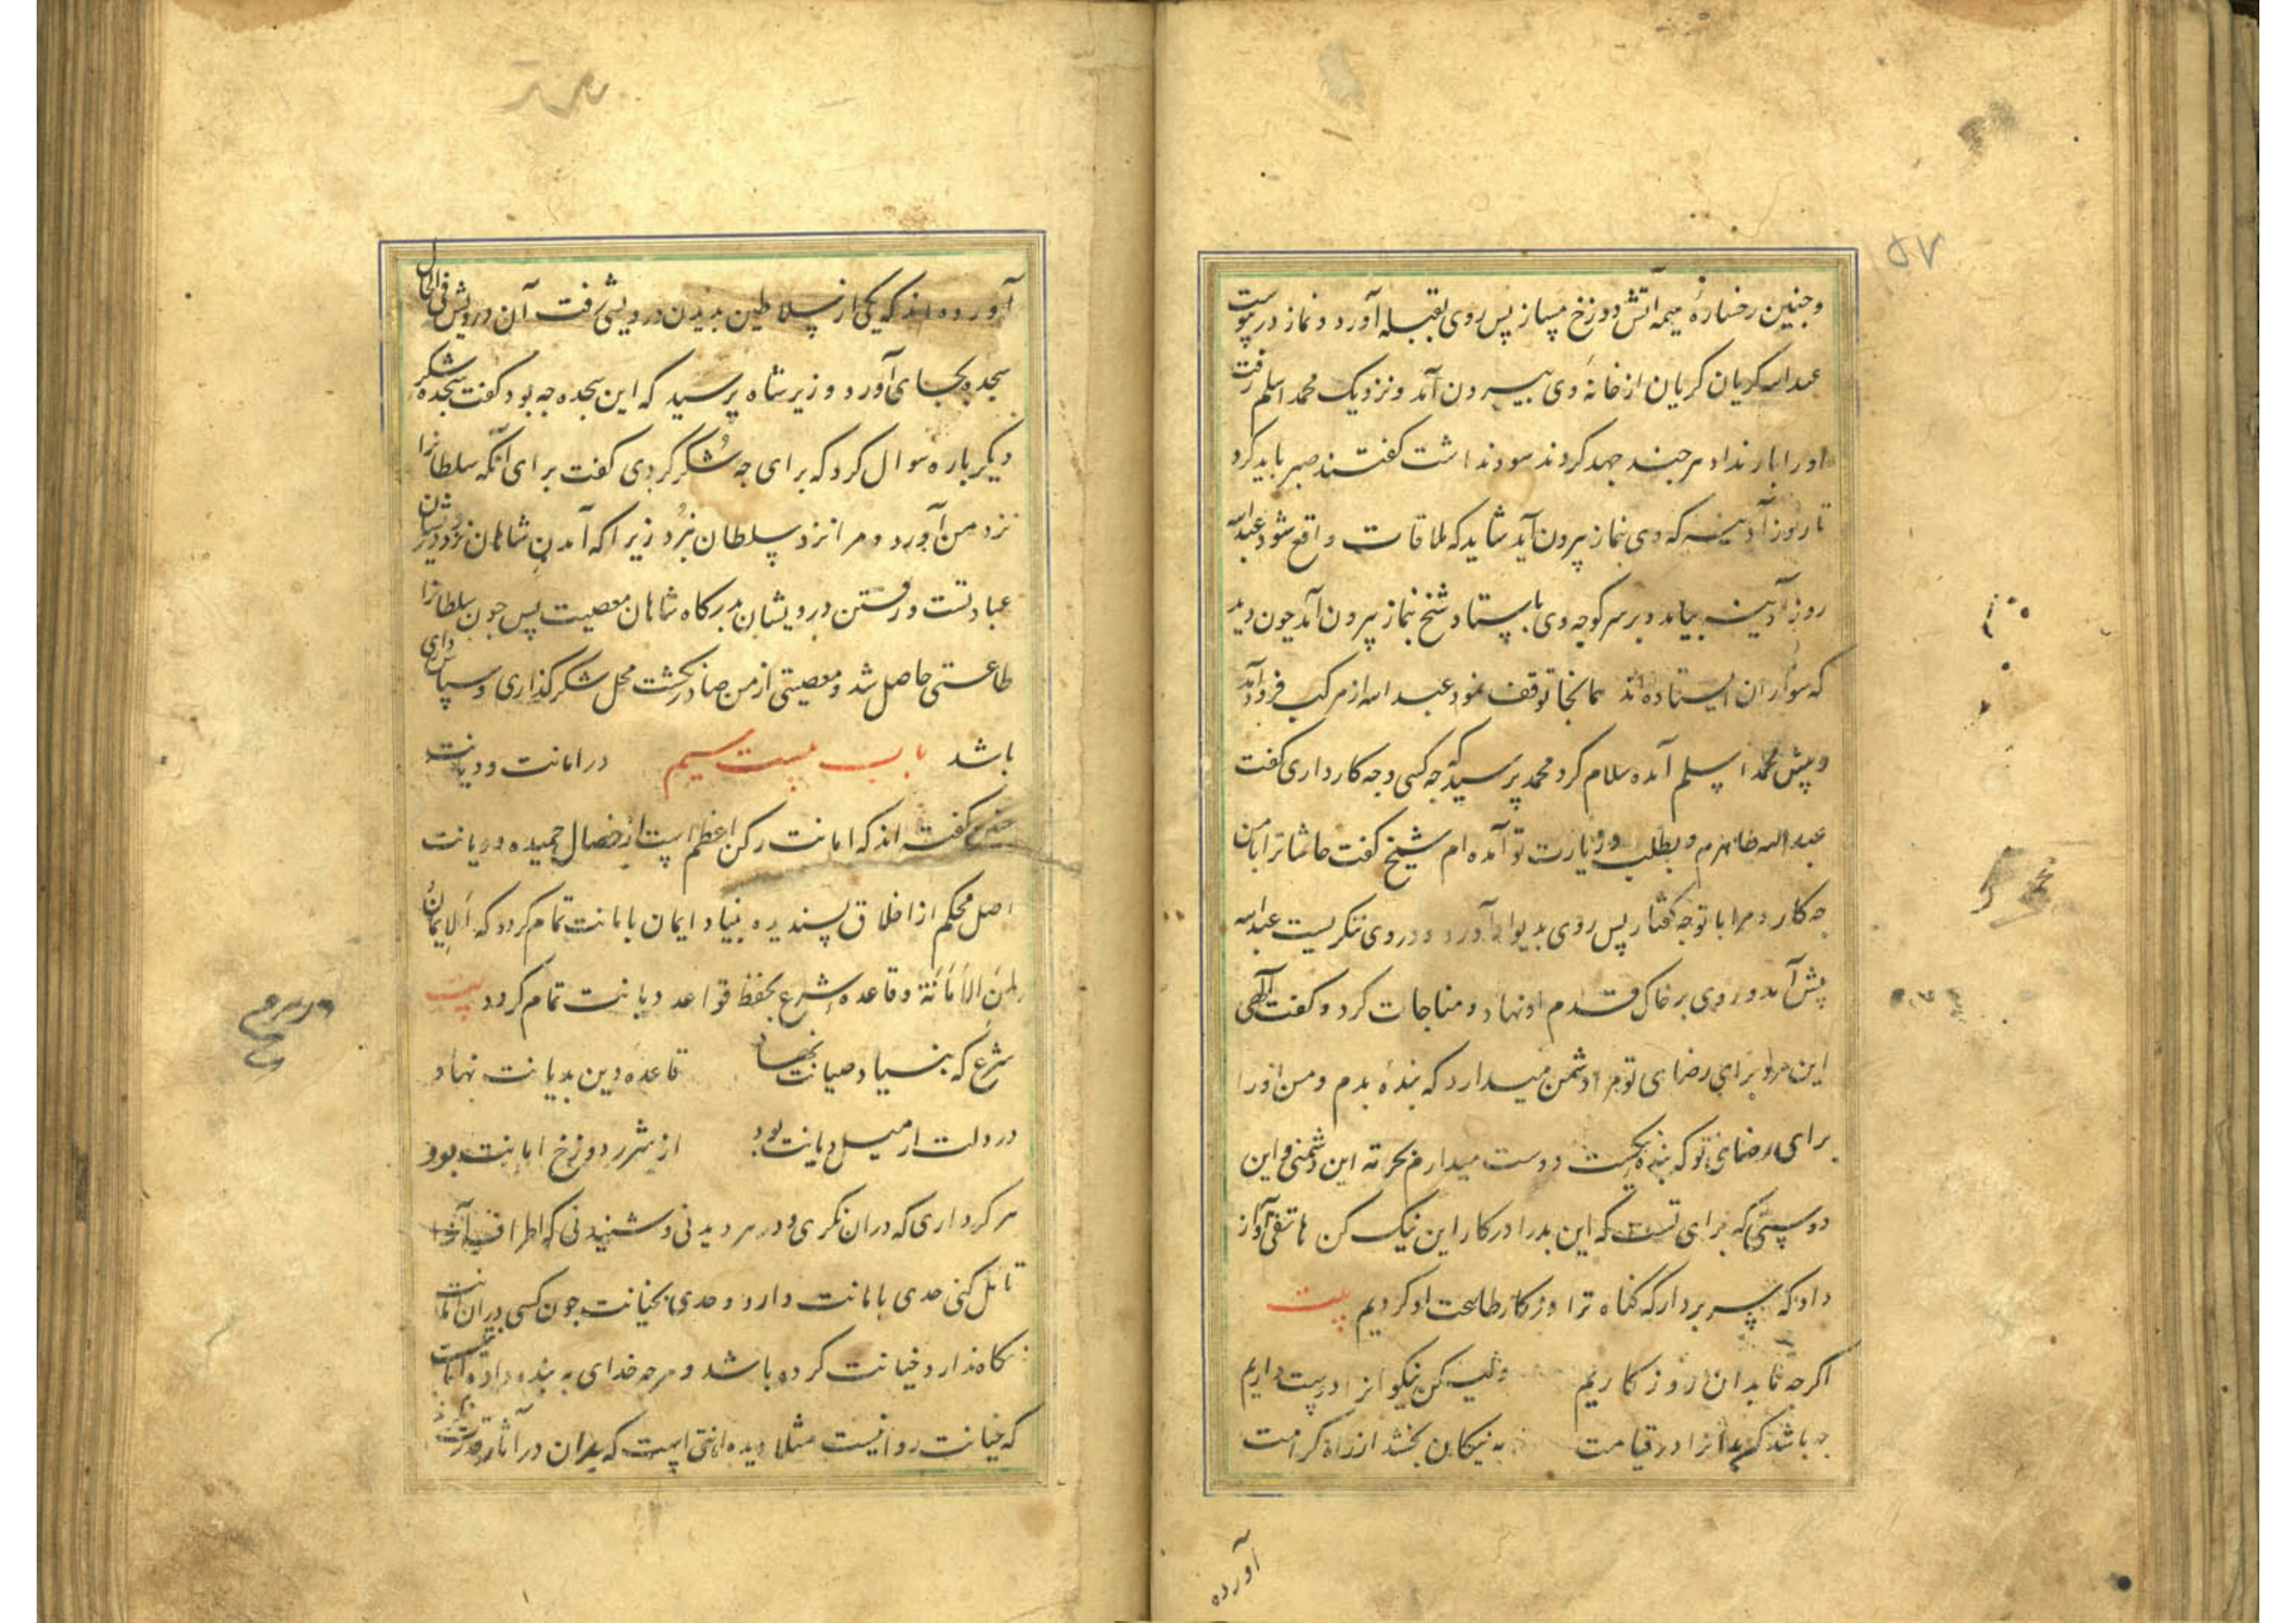 ۵۷
وچنین رخساره هیمه آتش دوزخ مساز پس روی بقبله آورد و نماز در پیوست
عبد الله کریان کریان از خانه وی بیرون آمد ونزدیک محمد اسلم رفت
اورا بار نداد هرجند جهد کردند سود نداشت کفتند صبر باید کرد
تا روز آدینه که وی بنماز بیرون آید شاید که ملاقات واقع شود عبد الله
روز آدینه بیامد وبر سر کوجه وی بایستاد شیخ بنماز بیرون آمد چون دید
که سواران ایستاده اند همانجا توقف نمود عبد الله از مرکب فرود آمد
وپیش محمد اسلم آمده سلام کرد محمد پرسید که جه کسی وجه کار داری کفت
عبد الله طاهرم وبطلب وزیارت تو آمده ام شیخ کفت حاشا ترا بامن
جه کار ومرا با تو جه کفتار پس روی بدیوار آورد ودر وی ننکریست عبد الله
پیش آمد وروی بر خاک قدم او نهاد ومناجات کرد وکفت الهی
این مرد برای رضای تو مرا دشمن میدارد که بنده بدم ومن اورا
برای رضای تو که بنده نیکست دوست میدارم بحرمت این دشمنی واین
دوستی که برای تست که این بد را در کار این نیک کن هاتفی آواز
داد که سر بردار که کناه ترا در کار طاعت او کردیم بیت
اکرجه ما بدان روز کاریم ولیکن نیکوانرا دوست داریم
جه باشد کر بدانرا در قیامت به نیکان بخشد از راه کرامت
آورده
آورده اند که یکی از سلاطین بدیدن درویشی رفت آن درویش فی الحال
سجده بجای آورد وزیر شاه پرسید که این سجده جه بود کفت سجده شکر
دیکر باره سوال کرد که برای جه شکر کردی کفت برای آنکه سلطانرا
نزد من آورد ومرا نزد سلطان نبرد زیرا که آمدن شاهان نزد درویشان
عبادتست ورفتن درویشان بدرکاه شاهان معصیت پس جون سلطانرا
طاعتی حاصل شد ومعصیتی از من صادر نکشت محل شکر کذاری وسپاس داری
باشد باب بیست سیم در امانت ودیانت
کفته اند که امانت رکن اعظم است از خصال حمیده ودیانت
اصل محکم از اخلاق پسندیده بنیاد ایمان بامانت تمام کردد که الایمان
لمن الامانة وقاعده شرع بحفظ قواعد دیانت تمام کردد بیت
شرع که بنیاد صیانت نهاد قاعده دین بدیانت نهاد
در دلت ار میل دیانت بود از شرر دوزخ امانت بود
هر کرداری که دران نکری ودر هر دیدنی وشنیدنی که اطراف آنرا
تامل کنی حدی بامانت دارد وحدی بخیانت جون کسی دران امانت
نکاه ندارد خیانت کرده باشد وهرجه خدای به بنده داده امانتیست
که خیانت روا نیست مثلا دیده امانتی است که بدان در آثار قدرت نکرند